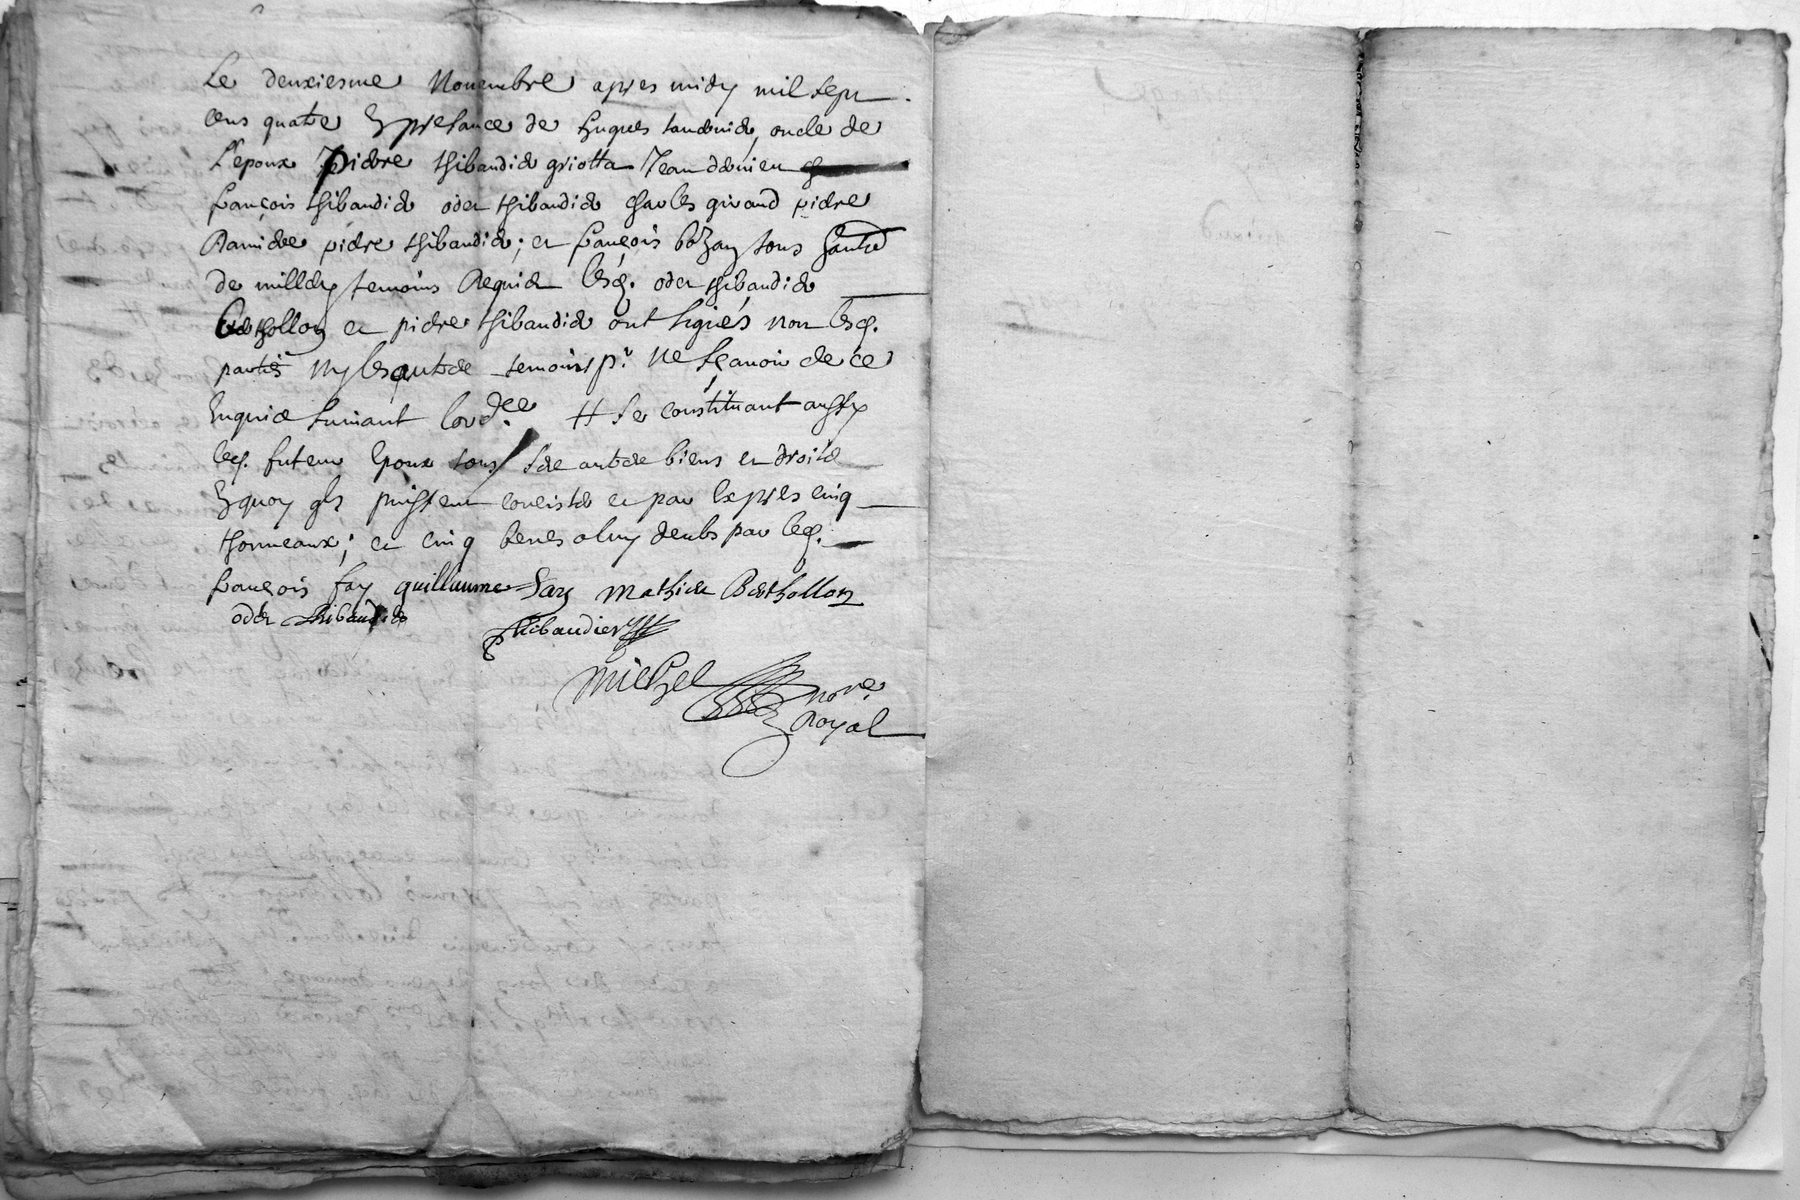 Le deuxiesme Novembre apres midy mil sept
cens quatre En presance de hugues oncle de
L'epoux Pierre thibaudier griotta Jean et
françois thibaudier oder thibaudier charles giraud pierre
pierre thibaudier; et françois tous hantes
de millery temoins Requis lesd. oder thibaudier
Berthollon et pierre thibaudier ont signés non lesd.
parties ny les autres temoins pr. ne sçavoir de ce
Enquis suivant lordce. # se constituant aussy
led. futeur Epoux tous ses autres biens et droits
En quoy qls puissent consister et par Expres cinq
thonneaux; et cinq benes a luy deubs par led.
françois fay guillaume Mathieu Berthollon
oder thibaudier Thibaudier
Michel nore.
Royal